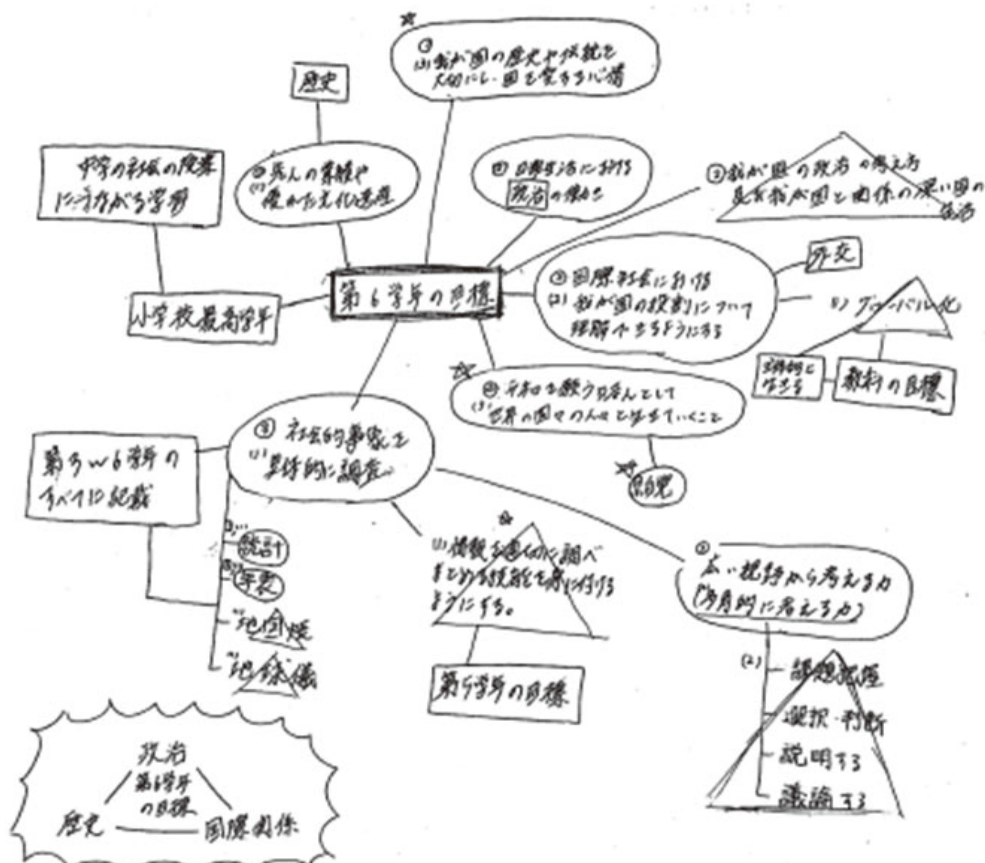 ①
(3) 我が国の歴史や伝統を
大切にし、国を愛する心情
歴史
中学の社会の授業
につながる学習
① 先人の業績や
(1) 優れた文化遺産
② 日常生活における
政治の働き
② 我が国の政治の考え方
我が国と関係の深い国の
生活
外交
第6学年の目標
③ 国際社会における
(2) 我が国の役割について
理解できるようにする
グローバル化
小学校最高学年
主体的に
生きる
教科の目標
平和を願う日本人として
(3) 世界の国々の人々と生きていくこと
③ 社会的事象を
具体的に調査
第3〜6学年の
すべてに記載
統計
年表
地図帳
地球儀
(1) 情報を適切に調べ
まとめる技能を身に付ける
ようにする。
第5学年の目標
広い視野から考える力
(多角的に考える力)
(2) 課題把握
選択・判断
説明する
議論する
政治
第6学年
の目標
歴史
国際関係